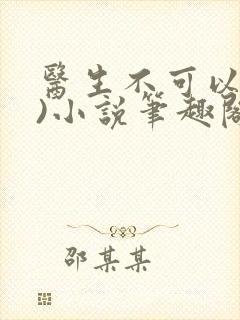 醫生不可以
)小說筆趣閣
邵某某